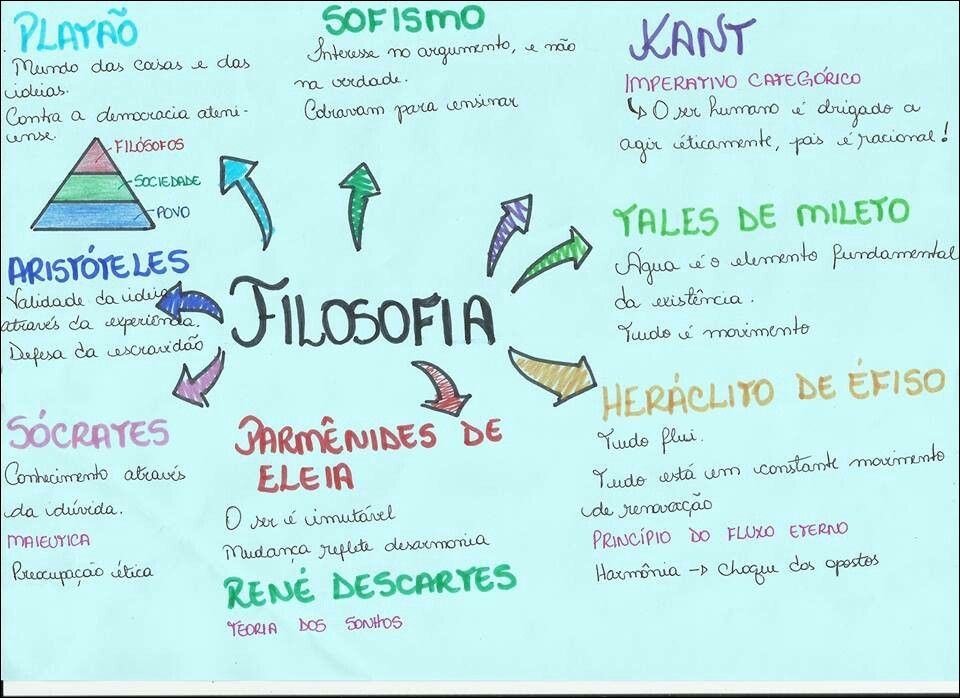 PLATÃO
Mundo das coisas e das
ideias.
Contra a democracia ateni-
ense.
FILÓSOFOS
SOCIEDADE
POVO
SOFISMO
Interesse no argumento, e não
na verdade.
Cobravam para ensinar
KANT
IMPERATIVO CATEGÓRICO
↳ O ser humano é drigado a
agir éticamente, pois é racional!
TALES DE MILETO
Água é o elemento fundamental
da existência.
Tudo é movimento
ARISTÓTELES
Validade da ideia
através da experiência.
Defesa da escravidão
FILOSOFIA
SÓCRATES
Conhecimento através
da dúvida.
MAIEUTICA
Preocupação ética
PARMÊNIDES DE
ELEIA
O ser é imutável
Mudança reflete desarmonia
RENÉ DESCARTES
TEORIA DOS SONHOS
HERÁCLITO DE ÉFISO
Tudo flui.
Tudo está em constante movimento
de renovação
PRINCÍPIO DO FLUXO ETERNO
Harmônia → choque dos opostos